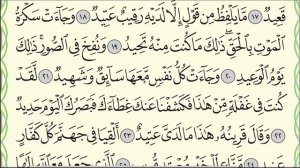 قَعِيدٌ ١٧ مَّا يَلْفِظُ مِن قَوْلٍ إِلَّا لَدَيْهِ رَقِيبٌ عَتِيدٌ ١٨ وَجَآءَتْ سَكْرَةُ
ٱلْمَوْتِ بِٱلْحَقِّ ۖ ذَٰلِكَ مَا كُنتَ مِنْهُ تَحِيدُ ١٩ وَنُفِخَ فِى ٱلصُّورِ ۚ ذَٰلِكَ
يَوْمُ ٱلْوَعِيدِ ٢٠ وَجَآءَتْ كُلُّ نَفْسٍ مَّعَهَا سَآئِقٌ وَشَهِيدٌ ٢١ لَّقَدْ
كُنتَ فِى غَفْلَةٍ مِّنْ هَٰذَا فَكَشَفْنَا عَنكَ غِطَآءَكَ فَبَصَرُكَ ٱلْيَوْمَ حَدِيدٌ
٢٢ وَقَالَ قَرِينُهُۥ هَٰذَا مَا لَدَىَّ عَتِيدٌ ٢٣ أَلْقِيَا فِى جَهَنَّمَ كُلَّ كَفَّارٍ